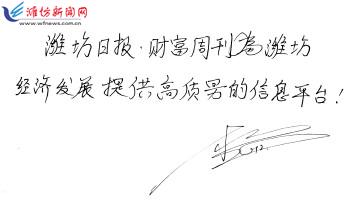 潍坊新闻网
www.wfnews.com.cn
潍坊日报·财富周刊为潍坊
经济发展提供高质量的信息平台!